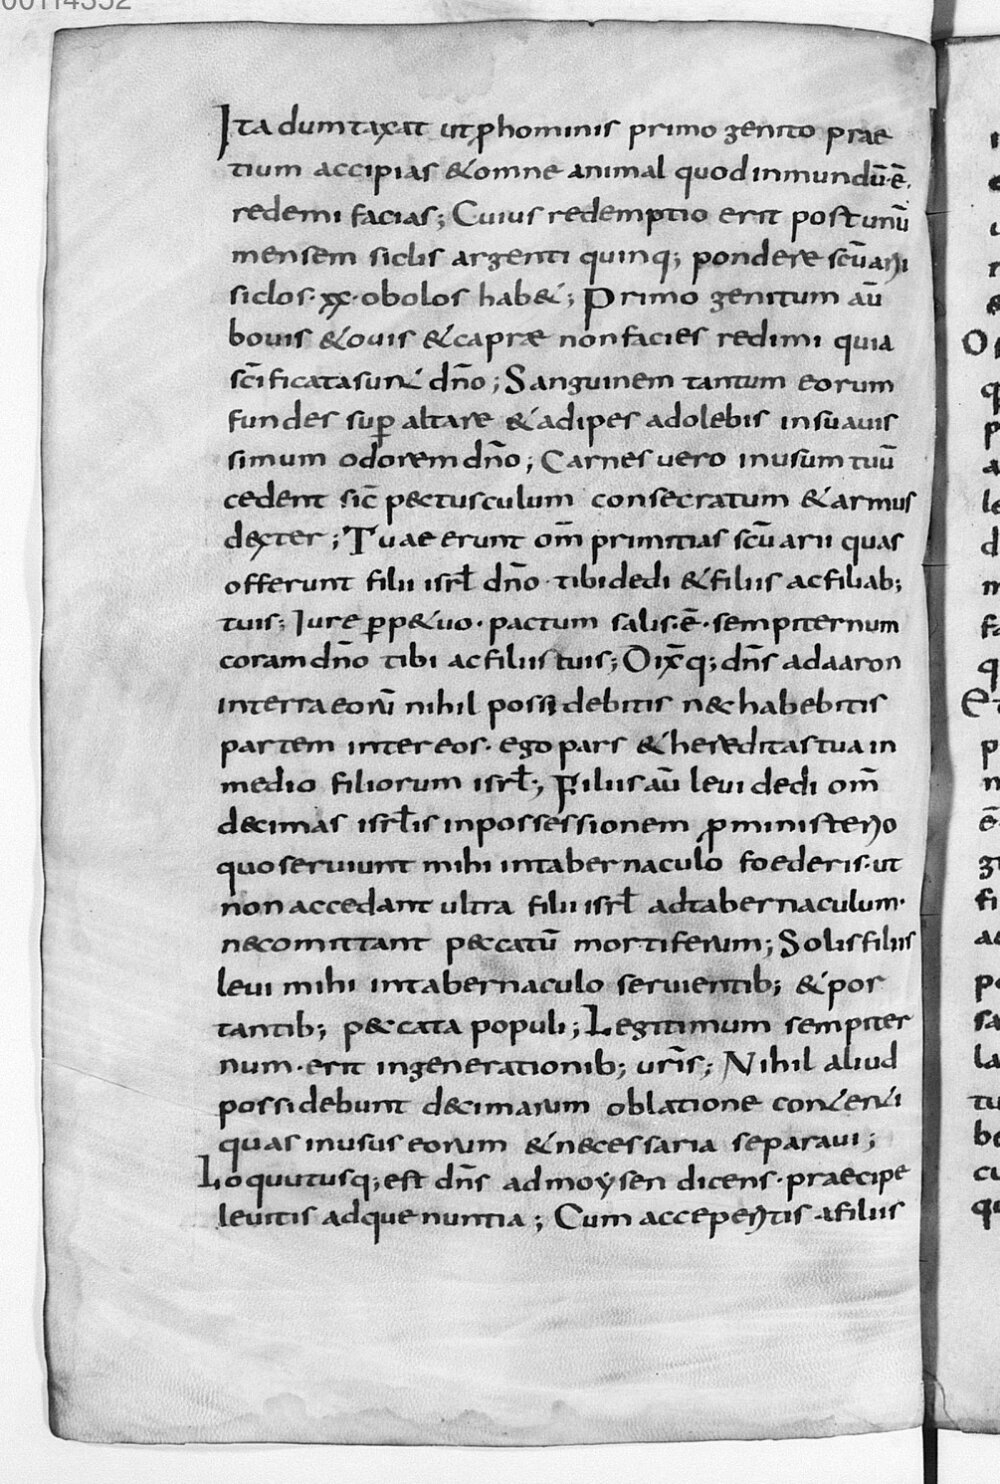 00114352
Ita dumtaxat ut ꝓhominis primo genito prae
tium accipias &omne animal quod inmundū·ē·
redemi facias; Cuius redemptio erit postunū
mensem siclis argenti quinq; pondere scūarii
siclos·xx·obolos hab&; Primo genitum aū
bouis &ouis &caprae nonfacies redimi quia
scīficatasunt dn̄o; Sanguinem tantum eorum
fundes suꝑ altare &adipes adolebis insuauis
simum odoremdn̄o; Carnes uero inusumtuū
cedent sic̄ p&usculum consecratum &armus
dexter; Tuae erunt om̄ primitias scūarii quas
offerunt filii isrl̄ dn̄o· tibi dedi &filiis acfiliab;
tuis; Iure ꝑp&uo· pactum salis·ē·sempiternum
coramdn̄o tibi acfiliistuis; Dix̄q; dn̄s adaaron
interraeorū nihil possidebitis nechabebitis
partem intereos· ego pars &hereditastua in
medio filiorum isrl̄; Filiisaū leui dedi om̄
decimas isrl̄is inpossessionem ꝓministerio
quoseruiunt mihi intabernaculo foederis·ut
non accedant ultra filii isrl̄ adtabernaculum·
necomittant peccatū mortiferum; Solisfiliis
leui mihi intabernaculo seruientib; &por
tantib; peccata populi; Legitimum sempiter
num·erit ingenerationib; ur̄is; Nihil aliud
possidebunt decimarum oblatione contenti
quas inusus eorum &necessaria separaui;
Loquutusq; est dn̄s admoẏsen dicens· praecipe
leuitis adque nuntia; Cum acceperitis afiliis